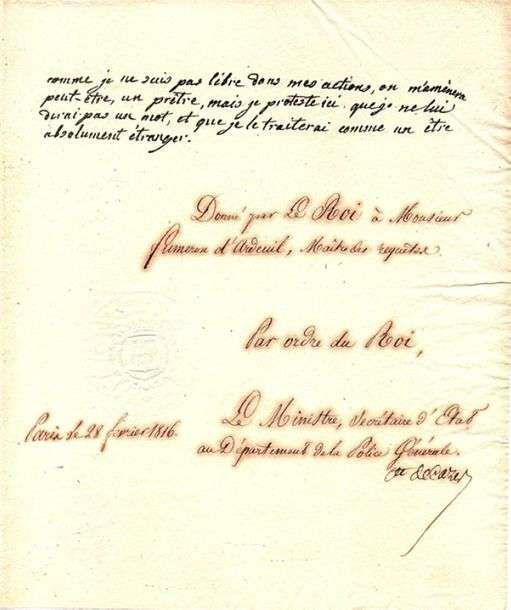 comme je ne suis pas libre dans mes actions, on m'amènera
peut-être, un prêtre, mais je proteste ici que je ne lui
dirai pas un mot, et que je le traiterai comme un être
absolument étranger.
Donné par Le Roi à Monsieur
fumeron d'Ardeuil, Maître des requêtes.
Par ordre du Roi,
Le Ministre, Secrétaire d'Etat
Paris le 28 fevrier 1816.
au Département de la Police Générale.
Cte decazes